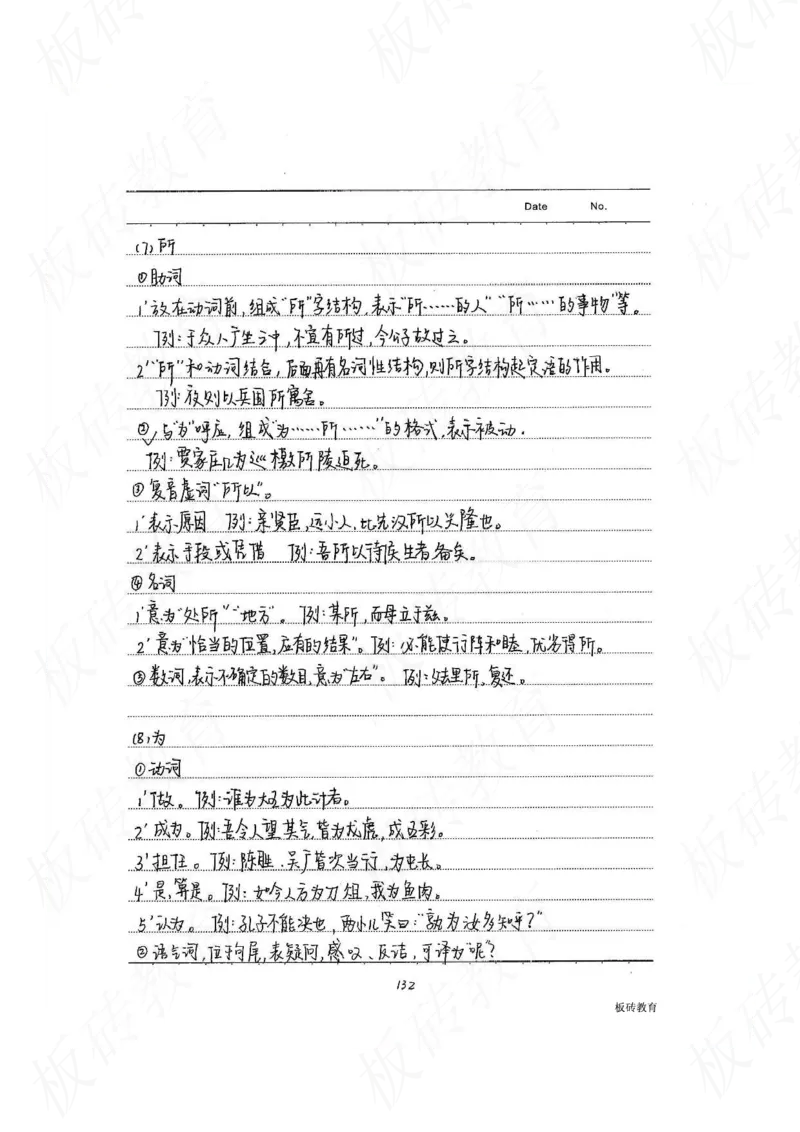 Date No.
(7)所
①助词
1'放在动词前,组成"所"字结构,表示"所……的人""所……的事物"等。
例:于众人广坐之中,不宜有所过,今公子故过之。
2'"所"和动词结合,后面再有名词性结构,则所字结构起定语的作用。
例:夜则以兵围所寓舍。
②与"为"呼应,组成"为……所……"的格式,表示被动.
例:贾家庄几为巡檄所陵迫死。
③复音虚词"所以"。
1'表示原因 例:亲贤臣,远小人,此先汉所以兴隆也。
2'表示手段或凭借 例:吾所以待侯生者备矣。
④名词
1'意为"处所""地方"。例:某所,而母立于兹。
2'意为"恰当的位置,应有的结果"。例:必能使行阵和睦,优劣得所。
⑤数词,表示不确定的数目,意为"左右"。 例:父去里所,复还。
(8)为
①动词
1'做。例:谁为大王为此计者。
2'成为。例:吾令人望其气,皆为龙虎,成五彩。
3'担任。例:陈胜、吴广皆次当行,为屯长。
4'是,算是。例:如今人方为刀俎,我为鱼肉。
5'认为。例:孔子不能决也,两小儿笑曰:"孰为汝多知乎?"
②语气词,位于句尾,表疑问,感叹、反诘,可译为"呢"?
132
板砖教育